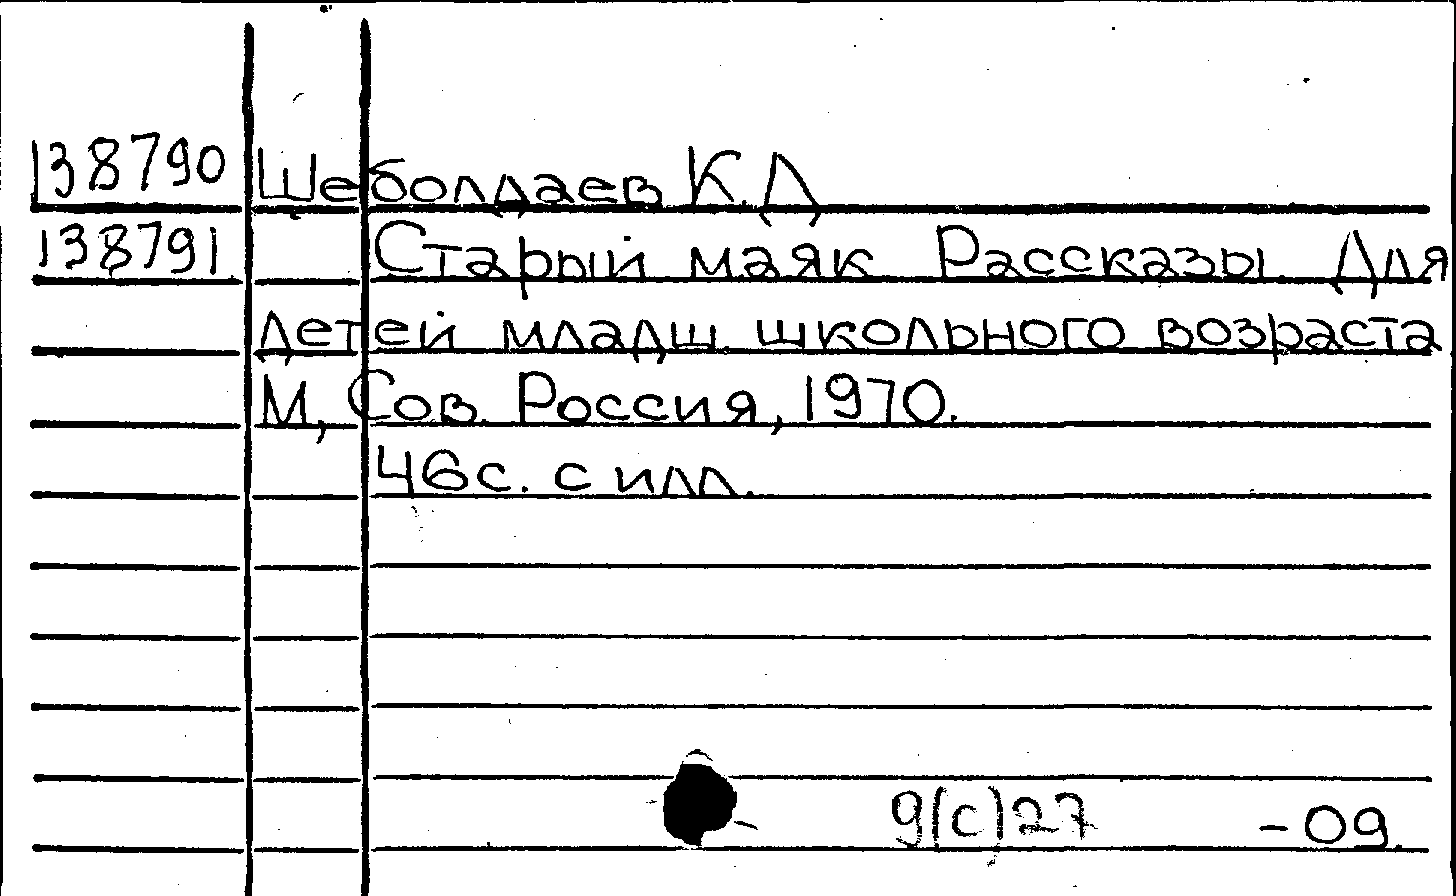 138790 Шеболдаев К.Д
138791 Старый маяк Рассказы. Для
детей младш. школьного возраста
М, Сов. Россия, 1970.
46с. с илл.
9(с)27 -09.